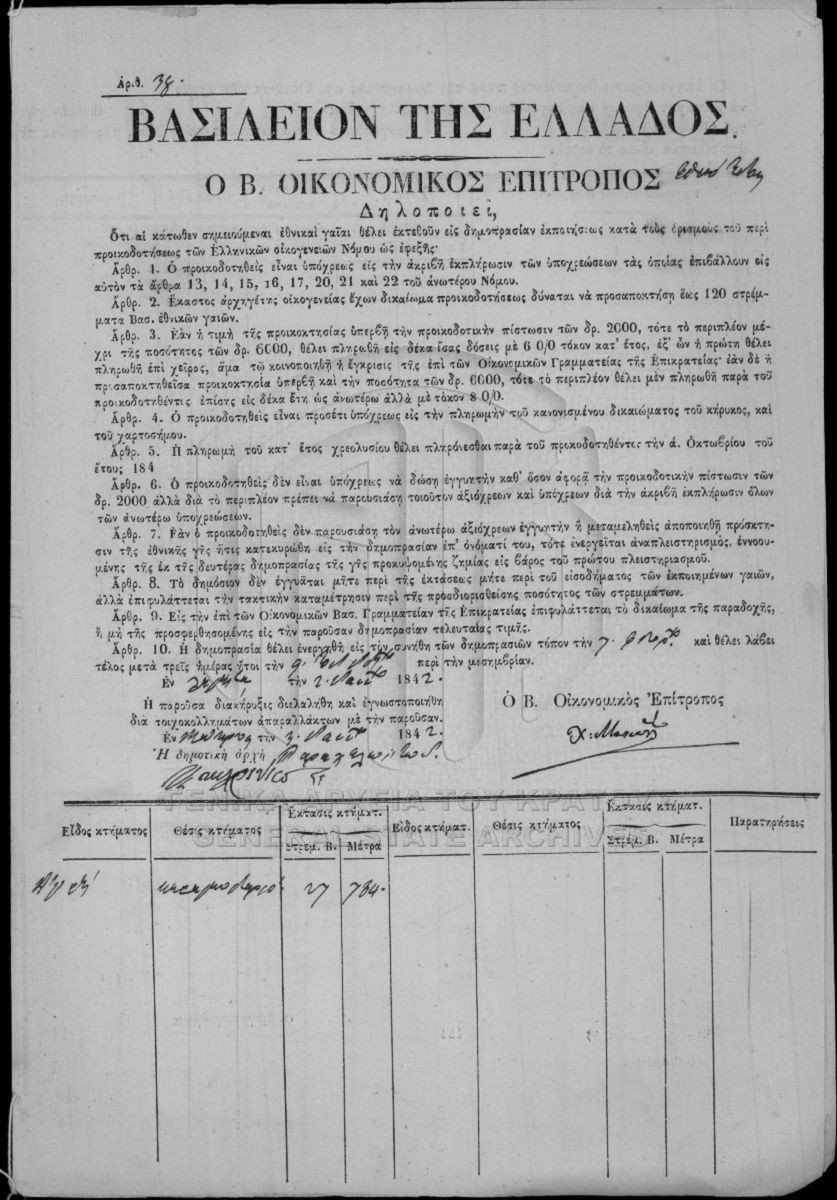 Ἀριθ. 38.
ΒΑΣΙΛΕΙΟΝ ΤΗΣ ΕΛΛΑΔΟΣ.
Ο Β. ΟΙΚΟΝΟΜΙΚΟΣ ΕΠΙΤΡΟΠΟΣ
Δηλοποιεῖ,
Ὅτι αἱ κάτωθεν σημειούμεναι ἐθνικαὶ γαῖαι θέλει ἐκτεθοῦν εἰς δημοπρασίαν ἐκποιήσεως κατὰ τοὺς ὁρισμοὺς τοῦ περὶ
προικοδοτήσεως τῶν Ἑλληνικῶν οἰκογενειῶν Νόμου ὡς ἐφεξῆς·
Ἄρθρ. 1. Ὁ προικοδοτηθεὶς εἶναι ὑπόχρεως εἰς τὴν ἀκριβῆ ἐκπλήρωσιν τῶν ὑποχρεώσεων τὰς ὁποίας ἐπιβάλλουν εἰς
αὐτὸν τὰ ἄρθρα 13, 14, 15, 16, 17, 20, 21 καὶ 22 τοῦ ἀνωτέρω Νόμου.
Ἄρθρ. 2. Ἕκαστος ἀρχηγέτης οἰκογενείας ἔχων δικαίωμα προικοδοτήσεως δύναται νὰ προσαποκτήσῃ ἕως 120 στρέμ-
ματα Βασ. ἐθνικῶν γαιῶν.
Ἄρθρ. 3. Ἐὰν ἡ τιμὴ τῆς προικοκτησίας ὑπερβῇ τὴν προικοδοτικὴν πίστωσιν τῶν δρ. 2000, τότε τὸ περιπλέον μέ-
χρι τῆς ποσότητος τῶν δρ. 6000, θέλει πληρωθῆ εἰς δέκα ἴσας δόσεις μὲ 6 0/0 τόκον κατ' ἔτος, ἐξ' ὧν ἡ πρώτη θέλει
πληρωθῆ ἐπὶ χεῖρος, ἅμα τῷ κοινοποιηθῆ ἡ ἔγκρισις τῆς ἐπὶ τῶν Οἰκονομικῶν Γραμματείας τῆς Ἐπικρατείας· ἐὰν δὲ ἡ
προσαποκτηθεῖσα προικοκτησία ὑπερβῇ καὶ τὴν ποσότητα τῶν δρ. 6000, τότε τὸ περιπλέον θέλει μὲν πληρωθῆ παρὰ τοῦ
προικοδοτηθέντος ἐπίσης εἰς δέκα ἔτη ὡς ἀνωτέρω ἀλλὰ μὲ τόκον 8 0/0.
Ἄρθρ. 4. Ὁ προικοδοτηθεὶς εἶναι προσέτι ὑπόχρεως εἰς τὴν πληρωμὴν τοῦ κανονισμένου δικαιώματος τοῦ κήρυκος, καὶ
τοῦ χαρτοσήμου.
Ἄρθρ. 5. Ἡ πληρωμὴ τοῦ κατ' ἔτος χρεολυσίου θέλει πληρόνεσθαι παρὰ τοῦ προκοδοτηθέντος τὴν ά. Ὀκτωβρίου τοῦ
ἔτους 184
Ἄρθρ. 6. Ὁ προικοδοτηθεὶς δὲν εἶναι ὑπόχρεως νὰ δώσῃ ἐγγυητὴν καθ' ὅσον ἀφορᾷ τὴν προικοδοτικὴν πίστωσιν τῶν
δρ. 2000 ἀλλὰ διὰ τὸ περιπλέον πρέπει νὰ παρουσιάσῃ τοιοῦτον ἀξιόχρεων καὶ ὑπόχρεων διὰ τὴν ἀκριβῆ ἐκπλήρωσιν ὅλων
τῶν ἀνωτέρω ὑποχρεώσεων.
Ἄρθρ. 7. Ἐὰν ὁ προικοδοτηθεὶς δὲν παρουσιάσῃ τὸν ἀνωτέρω ἀξιόχρεων ἐγγυητὴν ἢ μεταμεληθεὶς ἀποποιηθῆ πρόσκτη-
σιν τῆς ἐθνικῆς γῆς ἥτις κατεκυρώθη εἰς τὴν δημοπρασίαν ἐπ' ὀνόματί του, τότε ἐνεργεῖται ἀναπλειστηριασμός, ἐννοου-
μένης τῆς ἐκ τῆς δευτέρας δημοπρασίας τῆς γῆς προκυψομένης ζημίας εἰς βάρος τοῦ πρώτου πλειστηριασμοῦ.
Ἄρθρ. 8. Τὸ δημόσιον δὲν ἐγγυᾶται μήτε περὶ τῆς ἐκτάσεως μήτε περὶ τοῦ εἰσοδήματος τῶν ἐκποιημένων γαιῶν,
ἀλλὰ ἐπιφυλάττεται τὴν τακτικὴν καταμέτρησιν περὶ τῆς προσδιορισθείσης ποσότητος τῶν στρεμμάτων.
Ἄρθρ. 9. Εἰς τὴν ἐπὶ τῶν Οἰκονομικῶν Βασ. Γραμματείαν τῆς Ἐπικρατείας ἐπιφυλάττεται τὸ δικαίωμα τῆς παραδοχῆς,
ἢ μὴ τῆς προσφερθησομένης εἰς τὴν παροῦσαν δημοπρασίαν τελευταίας τιμῆς.
Ἄρθρ. 10. Ἡ δημοπρασία θέλει ἐνεργηθῆ εἰς τὸν συνήθη τῶν δημοπρασιῶν τόπον τὴν 7. καὶ θέλει λάβει
τέλος μετὰ τρεῖς ἡμέρας ἤτοι τὴν 9. περὶ τὴν μεσημβρίαν.
Ἐν τὴν 2. 1842.
Ἡ παροῦσα διακήρυξις διελαλήθη καὶ ἐγνωστοποιήθη
διὰ τοιχοκολλημάτων ἀπαραλλάκτων μὲ τὴν παροῦσαν.
Ἐν τὴν 3. 1842.
Ἡ δημοτικὴ ἀρχὴ
Ὁ Β. Οἰκονομικὸς Ἐπίτροπος
ΓΕΝΙΚΑ ΑΡΧΕΙΑ ΤΟΥ ΚΡΑΤΟΥΣ
GENERAL STATE ARCHIVES
Εἶδος κτήματος Θέσις κτήματος Ἔκτασις κτήματ. Στρέμ. Β. Μέτρα Εἶδος κτήματ. Θέσις κτήματος Ἔκτασις κτήματ. Στρέμ. Β. Μέτρα Παρατηρήσεις
27 784.